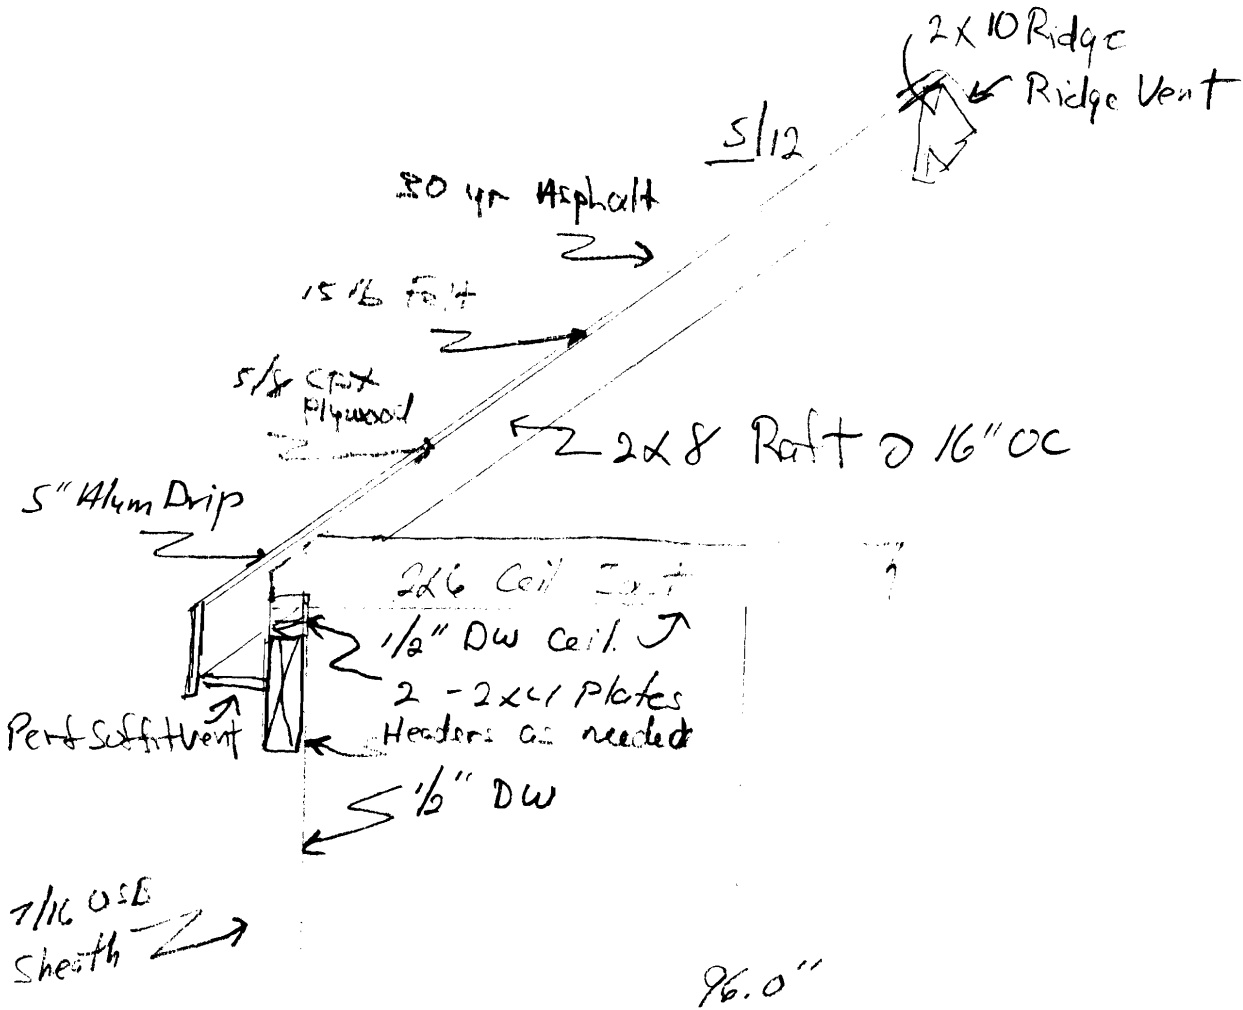 2x10 Ridge
Ridge Vent
5/12
30 yr Asphalt
15 lb Felt
5/8 CDX
Plywood
2x8 Raft @ 16" OC
5" Alum Drip
2x6 Ceil Joist
1/2" DW Ceil.
2 - 2x4 Plates
Perf Soffit Vent
Headers as needed
1/2" DW
7/16 OSB
Sheath
96.0"